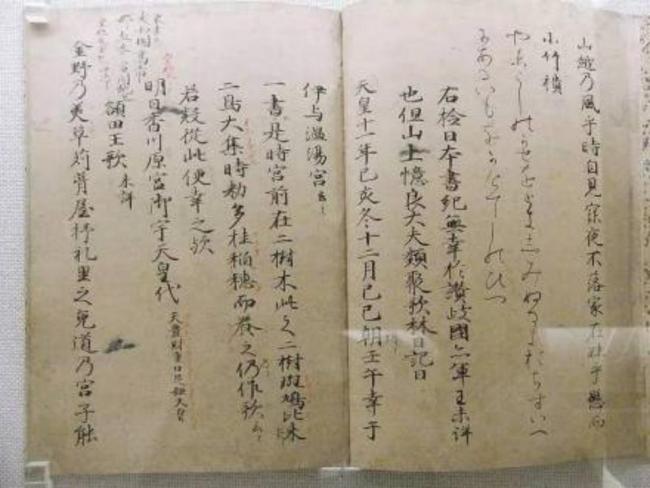 山越乃風乎時自見寐夜不落家在妹乎懸而
小竹樻
やまこしのかせをときしみぬるよおちすいへ
にあるいもをかけてしのひつ
右檢日本書紀無幸於讃岐國亦軍王未詳
也但山上憶良大夫類聚歌林曰記曰
天皇十一年己亥冬十二月己巳朔壬午幸于
伊与温湯宮云々
一書是時宮前在二樹木此之二樹斑鳩比米
二鳥大集時勅多挂稲穂而養之仍作歌云々
若疑從此便幸之歟
明日香川原宮御宇天皇代 天豊財重日足姫天皇
額田王歌 未詳
金野乃美草苅葺屋杼礼里之兎道乃宮子能